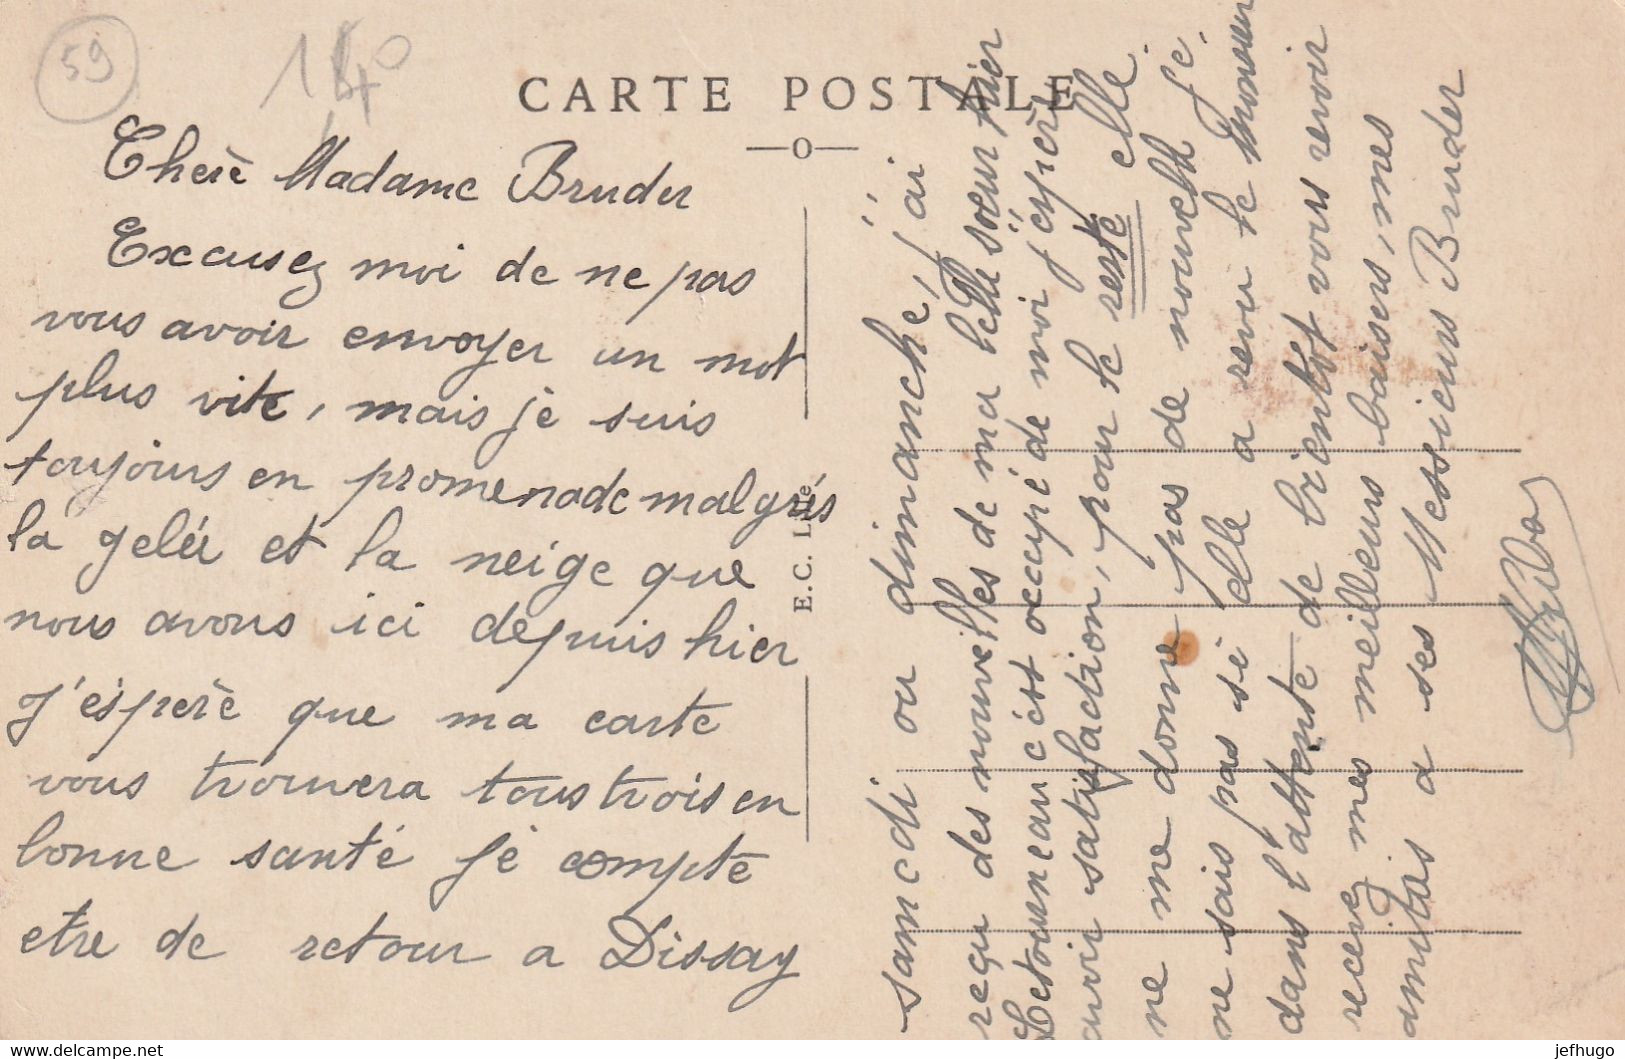 59
140
CARTE POSTALE
Cherè Madame Bruder
Excusez moi de ne pas
vous avoir envoyer un mot
plus vite, mais jè suis
toujours en promenade malgrés
la geléé et la neige que
nous avons ici depuis hier
J'éspérè que ma carte
vous trouvera tous trois en
bonne santé jè compte
etre de retour a Dissay
E.C. Lille
samedi ou dimanche, j'ai
reçu des nouvelles de ma belle soeur hier
Letourneau c'est occupé de moi j'espère
avoir satisfaction, pour le reste elle
ne me donne pas de nouvelle je
ne sais pas si elle a revu le Monsieur
dans l'attente de bientot vous revoir
recevez mes meilleurs baisers, mes
amitiés a ses Messieurs Bruder
jefhugo
delcampe.net